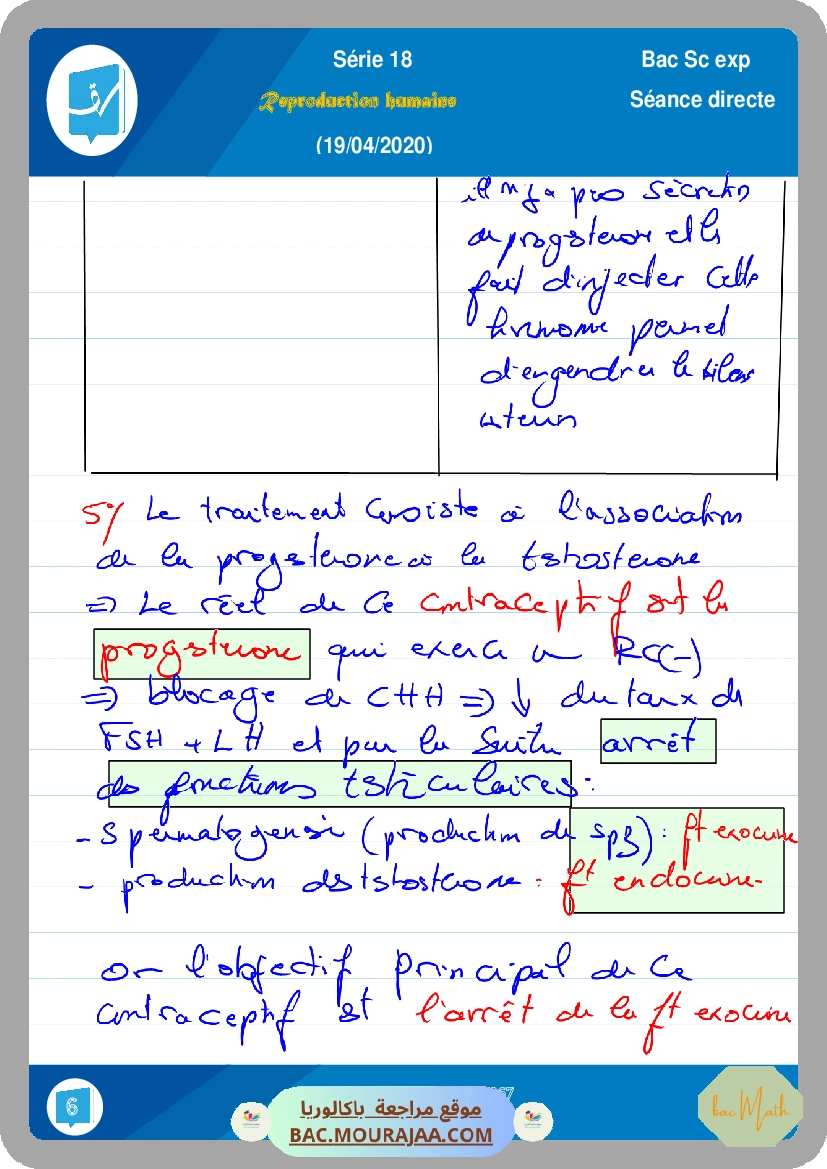 Série 18
Bac Sc exp
Reproduction humaine
Séance directe
(19/04/2020)
il n'y a pas sécrétn
de progsterone et le
fait d'injecter cette
hormone permet
d'engendrer le silence
uterin
5°/ Le traitement consiste à l'association
de la progsterone à la tstosterone
=> Le réel de ce contraceptif est la
progsterone qui exerce un RC(-)
=> blocage de CHH => ↓ du taux de
FSH + LH et par la suite arrêt
des fonctions tsticulaires :
- Spermatogenèse (production de spz) : ft exocrine
- production de tstosterone : ft endocrine-
or l'objectif principal de ce
contraceptif st l'arrêt de la ft exocrine
6
موقع مراجعة باكالوريا
BAC.MOURAJAA.COM
bac Math